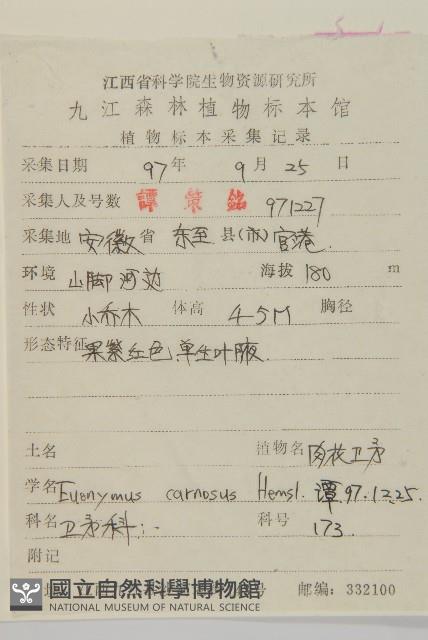 江西省科学院生物资源研究所
九江森林植物标本馆
植物标本采集记录
采集日期 97年 9月 25日
采集人及号数 譚策銘 971227
采集地 安徽省 东至县(市) 官港.
环境 山脚河边 海拔 180 m
性状 小乔木 体高 4-5M 胸径
形态特征 果紫红色,单生叶腋.
土名 植物名 肉花卫矛
学名 Euonymus carnosus Hemsl. 谭.97.12.25.
科名 卫矛科 科号 173.
附记
号 邮编: 332100
國立自然科學博物館
NATIONAL MUSEUM OF NATURAL SCIENCE